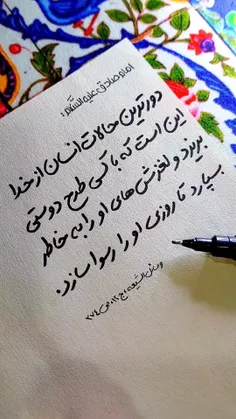 امام صادق علیه السلام:
دورترین حالات انسان از خدا
این است که با کسی طرح دوستی
بریزد و لغزش های او را به خاطر
بسپارد تا روزی او را رسوا سازد.
وسائل الشیعه، ج ۱۲، ص